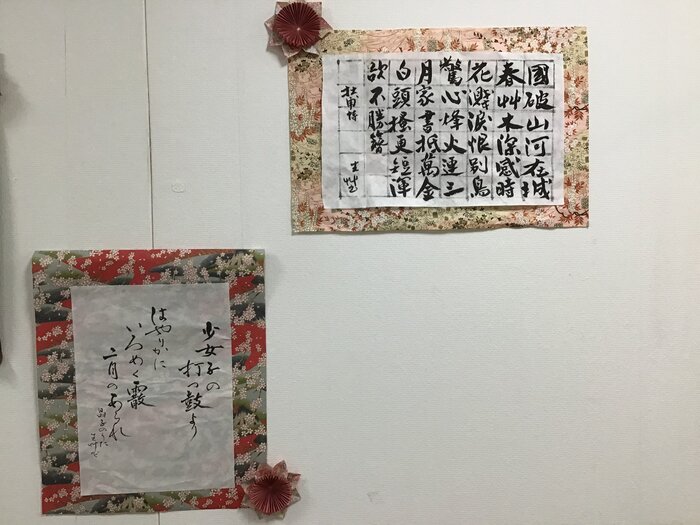 國破山河在城
春艸木深感時
花濺淚恨別鳥
驚心烽火連三
月家書抵萬金
白頭搔更短渾
欲不勝簪
杜甫詩
少女子の
打つ鼓より
はやりかに
いろめく霰
二月のあられ
晶子のうた